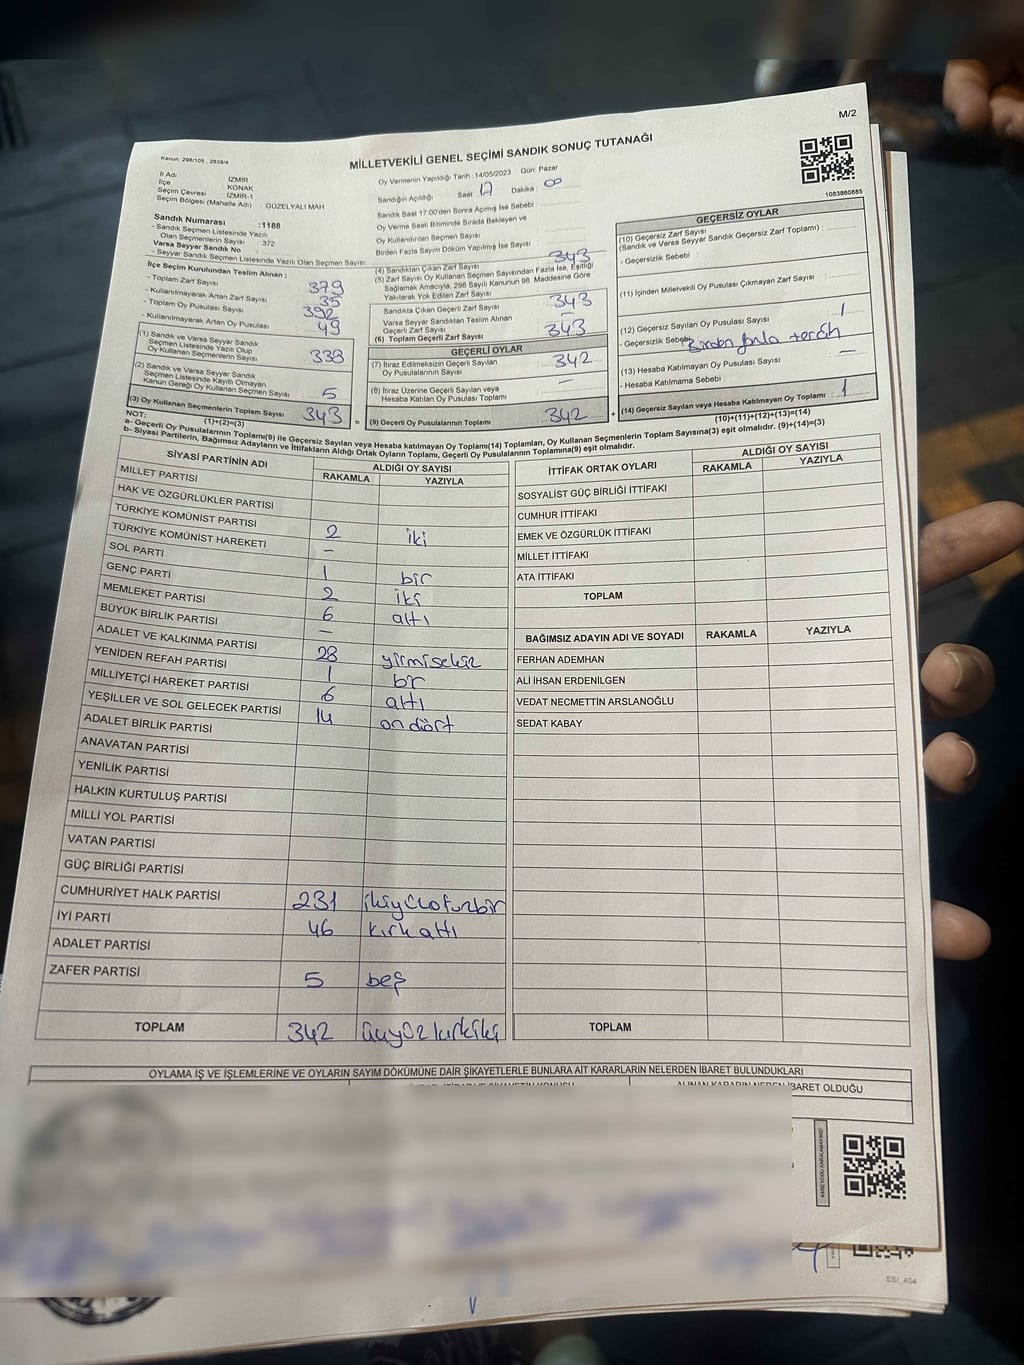 M/2
Kanun: 298/105 , 2839/4
MİLLETVEKİLİ GENEL SEÇİMİ SANDIK SONUÇ TUTANAĞI
1083860885
İl Adı : İZMİR
İlçe : KONAK
Seçim Çevresi : İZMİR-1
Seçim Bölgesi (Mahalle Adı) : GÜZELYALI MAH
Sandık Numarası :1188
- Sandık Seçmen Listesinde Yazılı
Olan Seçmenlerin Sayısı : 372
Varsa Seyyar Sandık No :
- Seyyar Sandık Seçmen Listesinde Yazılı Olan Seçmen Sayısı:
İlçe Seçim Kurulundan Teslim Alınan :
- Toplam Zarf Sayısı 379
- Kullanılmayarak Artan Zarf Sayısı 35
- Toplam Oy Pusulası Sayısı 392
- Kullanılmayarak Artan Oy Pusulası 49
(1) Sandık ve Varsa Seyyar Sandık
Seçmen Listesinde Yazılı Olup
Oy Kullanan Seçmenlerin Sayısı 338
(2) Sandık ve Varsa Seyyar Sandık
Seçmen Listesinde Kayıtlı Olmayan
Kanun Gereği Oy Kullanan Seçmen Sayısı 5
(3) Oy Kullanan Seçmenlerin Toplam Sayısı 343
(1)+(2)=(3)
Oy Vermenin Yapıldığı Tarih : 14/05/2023 Gün: Pazar
Sandığın Açıldığı Saat: 17 Dakika :
Sandık Saat 17:00'den Sonra Açılmış İse Sebebi :
Oy Verme Saati Bitiminde Sırada Bekleyen ve
Oy Kullandırılan Seçmen Sayısı :
Birden Fazla Sayım Döküm Yapılmış İse Sayısı :
(4) Sandıktan Çıkan Zarf Sayısı 343
(5) Zarf Sayısı Oy Kullanan Seçmen Sayısından Fazla İse, Eşitliği
Sağlamak Amacıyla, 298 Sayılı Kanunun 98. Maddesine Göre
Yakılarak Yok Edilen Zarf Sayısı
Sandıkta Çıkan Geçerli Zarf Sayısı 343
Varsa Seyyar Sandıktan Teslim Alınan
Geçerli Zarf Sayısı –
(6) Toplam Geçerli Zarf Sayısı 343
GEÇERLİ OYLAR
(7) İtiraz Edilmeksizin Geçerli Sayılan
Oy Pusulalarının Sayısı 342
(8) İtiraz Üzerine Geçerli Sayılan veya
Hesaba Katılan Oy Pusulası Toplamı –
= (9) Geçerli Oy Pusulalarının Toplamı 342 +
GEÇERSİZ OYLAR
(10) Geçersiz Zarf Sayısı
(Sandık ve Varsa Seyyar Sandık Geçersiz Zarf Toplamı) :
- Geçersizlik Sebebi :
(11) İçinden Milletvekili Oy Pusulası Çıkmayan Zarf Sayısı :
(12) Geçersiz Sayılan Oy Pusulası Sayısı : 1
- Geçersizlik Sebebi: Birden fazla tercih
(13) Hesaba Katılmayan Oy Pusulası Sayısı : –
- Hesaba Katılmama Sebebi :
(14) Geçersiz Sayılan veya Hesaba Katılmayan Oy Toplamı : 1
(10)+(11)+(12)+(13)=(14)
NOT:
a- Geçerli Oy Pusulalarının Toplamı(9) ile Geçersiz Sayılan veya Hesaba katılmayan Oy Toplamı(14) Toplamları, Oy Kullanan Seçmenlerin Toplam Sayısına(3) eşit olmalıdır. (9)+(14)=(3)
b- Siyasi Partilerin, Bağımsız Adayların ve İttifakların Aldığı Ortak Oyların Toplamı, Geçerli Oy Pusulalarının Toplamına(9) eşit olmalıdır.
SİYASİ PARTİNİN ADI ALDIĞI OY SAYISI
RAKAMLA YAZIYLA
MİLLET PARTİSİ
HAK VE ÖZGÜRLÜKLER PARTİSİ
TÜRKİYE KOMÜNİST PARTİSİ 2 iki
TÜRKİYE KOMÜNİST HAREKETİ –
SOL PARTİ 1 bir
GENÇ PARTİ 2 iki
MEMLEKET PARTİSİ 6 altı
BÜYÜK BİRLİK PARTİSİ –
ADALET VE KALKINMA PARTİSİ 28 yirmisekiz
YENİDEN REFAH PARTİSİ 1 bir
MİLLİYETÇİ HAREKET PARTİSİ 6 altı
YEŞİLLER VE SOL GELECEK PARTİSİ 14 ondört
ADALET BİRLİK PARTİSİ
ANAVATAN PARTİSİ
YENİLİK PARTİSİ
HALKIN KURTULUŞ PARTİSİ
MİLLİ YOL PARTİSİ
VATAN PARTİSİ
GÜÇ BİRLİĞİ PARTİSİ
CUMHURİYET HALK PARTİSİ 231 ikiyüzotuzbir
İYİ PARTİ 46 kırkaltı
ADALET PARTİSİ
ZAFER PARTİSİ 5 beş
TOPLAM 342 üçyüzkırkiki
İTTİFAK ORTAK OYLARI ALDIĞI OY SAYISI
RAKAMLA YAZIYLA
SOSYALİST GÜÇ BİRLİĞİ İTTİFAKI
CUMHUR İTTİFAKI
EMEK VE ÖZGÜRLÜK İTTİFAKI
MİLLET İTTİFAKI
ATA İTTİFAKI
TOPLAM
BAĞIMSIZ ADAYIN ADI VE SOYADI RAKAMLA YAZIYLA
FERHAN ADEMHAN
ALİ İHSAN ERDENİLGEN
VEDAT NECMETTİN ARSLANOĞLU
SEDAT KABAY
TOPLAM
OYLAMA İŞ VE İŞLEMLERİNE VE OYLARIN SAYIM DÖKÜMÜNE DAİR ŞİKAYETLERLE BUNLARA AİT KARARLARIN NELERDEN İBARET BULUNDUKLARI
ALINAN KARARIN NEDEN İBARET OLDUĞU
KARE KODU KARALAMAYINIZ!
SSI_404